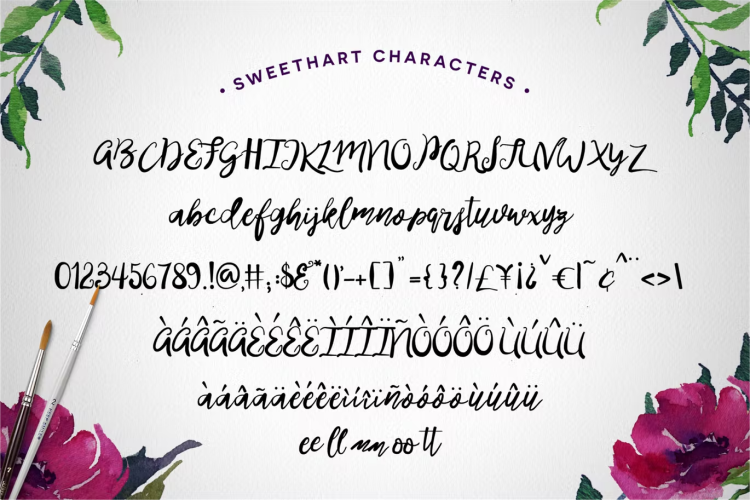 • SWEETHART CHARACTERS •
ABCDEFGHIJKLMNOPQRSTUVWXYZ
abcdefghijklmnopqrstuvwxyz
0123456789.!@,#;:$&"*()'-+[]"={}?/£¥¡¿ˇ€|~¢^¨<>\
ÀÁÂÃÄÈÉÊËÌÍÎÏÑÒÓÔÖÙÚÛÜ
àáâãäèéêëìíîïñòóôöùúûü
ee ll nn oo tt